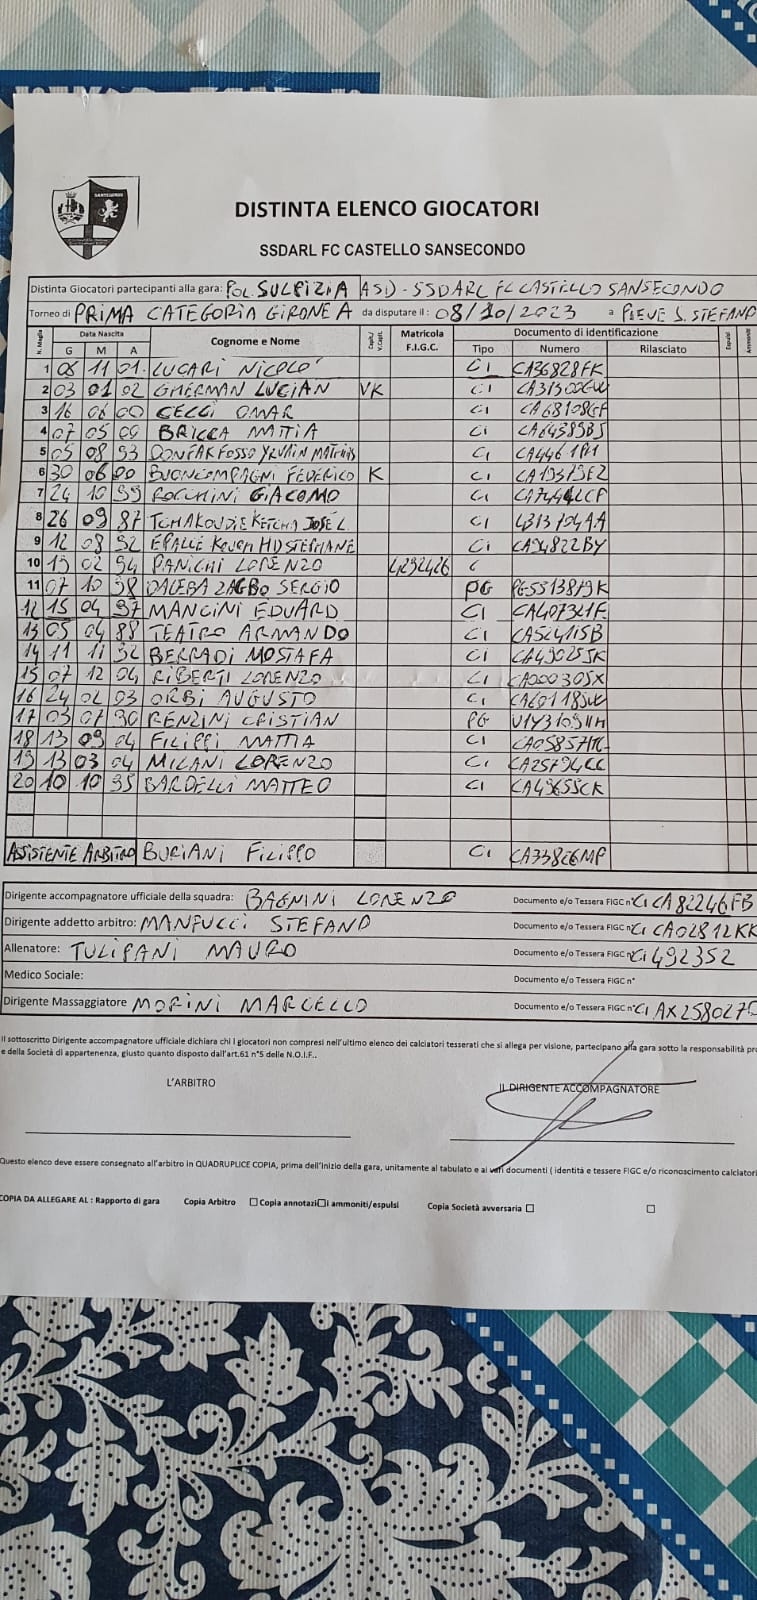 SANSECONDO
DISTINTA ELENCO GIOCATORI
SSDARL FC CASTELLO SANSECONDO
Distinta Giocatori partecipanti alla gara: POL. SULPIZIA ASD - SSDARL FC CASTELLO SANSECONDO
Torneo di PRIMA CATEGORIA GIRONE A da disputare il : 08/10/2023 a PIEVE S. STEFANO
N. Maglia Data Nascita Cognome e Nome Cap./ V.Capit. Matricola F.I.G.C. Documento di identificazione Espulsi Ammoniti
G M A Tipo Numero Rilasciato
1 08 11 01 LUCARI NICOLO' CI CA36828FK
2 03 01 02 GHERMAN LUCIAN VK CI
3 16 06 00 CECCI OMAR CI CA68108GF
4 07 05 00 BRICCA MATTIA CI CA64389BJ
5 05 08 93 CI
6 30 06 00 BUONCOMPAGNI FEDERICO K CI
7 24 10 99 ROCCHINI GIACOMO CI
8 26 09 87 TCHAKOUDIE KETCHA JOSÉ L. CI
9 12 08 92 EPALLE KEVEN HDSTEPHANE CI CA94822BY
10 PANICHI LORENZO 4292426
11 07 10 98 DALEBA ZAGBO SERGIO PG
12 15 04 97 MANCINI EDUARD CI
13 05 04 88 TEATRO ARMANDO CI CA52411SB
14 11 11 92 BERRADI MOSTAFA CI CA49025JK
15 07 12 04 RIBERTI LORENZO CI CA00030SX
16 24 02 03 ORBI AUGUSTO CI
17 03 07 90 RENZINI CRISTIAN PG
18 13 09 04 FILIPPI MATTIA CI
19 13 03 04 MILANI LORENZO CI CA25794CC
20 10 10 95 BARDELLI MATTEO CI CA49655CK
ASSISTENTE ARBITRO BURIANI FILIPPO CI CA33826MP
Dirigente accompagnatore ufficiale della squadra: BAGNINI LORENZO Documento e/o Tessera FIGC n° CI CA82246FB
Dirigente addetto arbitro: MANFUCCI STEFANO Documento e/o Tessera FIGC n° CI CA02812KK
Allenatore: TULIPANI MAURO Documento e/o Tessera FIGC n° CI 492352
Medico Sociale: Documento e/o Tessera FIGC n°
Dirigente Massaggiatore MORINI MARCELLO Documento e/o Tessera FIGC n° CI AX2580275
Il sottoscritto Dirigente accompagnatore ufficiale dichiara chi i giocatori non compresi nell'ultimo elenco dei calciatori tesserati che si allega per visione, partecipano alla gara sotto la responsabilità pro
e della Società di appartenenza, giusto quanto disposto dall'art.61 n°5 delle N.O.I.F..
L'ARBITRO IL DIRIGENTE ACCOMPAGNATORE
Questo elenco deve essere consegnato all'arbitro in QUADRUPLICE COPIA, prima dell'inizio della gara, unitamente al tabulato e ai veri documenti ( identità e tessere FIGC e/o riconoscimento calciatori
COPIA DA ALLEGARE AL : Rapporto di gara Copia Arbitro Copia annotazioni ammoniti/espulsi Copia Società avversaria